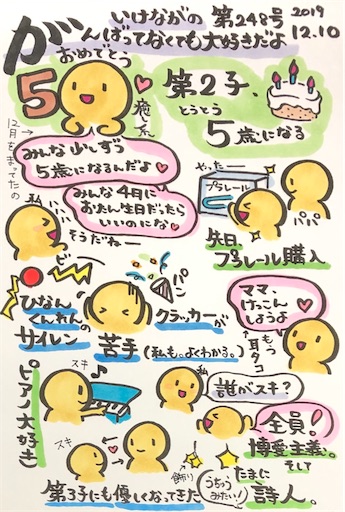 いけながの 第248号 2019 12.10
がんばってなくても大好きだよ
おめでとう
5
癒し系
第2子、
とうとう
5歳になる
12月をまってたの
みんな少しずつ
5歳になるんだよ
みんな4月に
おたん生日だったら
いいのにな
私
そうだねー
やったー
プラレール
パパ
先日、
プラレール購入
ビー
パン
ひなん
くんれんの
サイレン
クラッカーが
苦手(私も。よくわかる。)
ママ、
けっこん
しようよ
もう
耳タコ
ピアノ大好き
スキ
私
誰がスキ?
全員!
博愛主義。
そして
スキ
第3子にも優しくなってきた
飾り
うちゅう
みたい!
たまに
詩人。